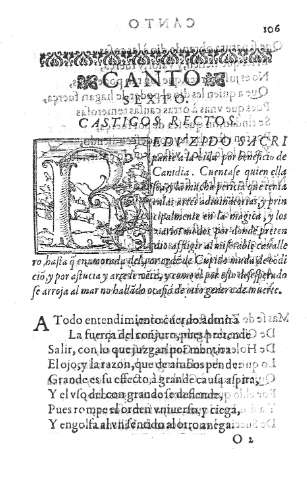 CANTO
106
CANTO
SEXTO.
CASTIGOS RECTOS.
REDVZIDO SACRI
pante a la vida por beneficio de
Canidia. Cuentase quien ella
sea, y la mucha pericia que tenia
en las artes adiuinatorias, y prin
cipalmente en la magica, y los
varios modos por donde preten
dio affligir al miserable caualle
ro hasta q̃ enamorada del, por orde de Cupido muda de codi
cio, y por astucia y arte
se arroja al mar no hallãdo ocasiõ de otro genero de muerte.
A Todo entendimiento cuerdo admira
La fuerça del conjuro, pues pretende
Salir, con lo que juzgan por mentira
El ojo, y la razon, que de ambos pende:
Grande es su effecto, à grande causa aspira,
Y el vso del con grande se defiende,
Pues rompe el orden vniuersal, y ciega,
Y engolfa al vn sentido, al otro anega.
O 2